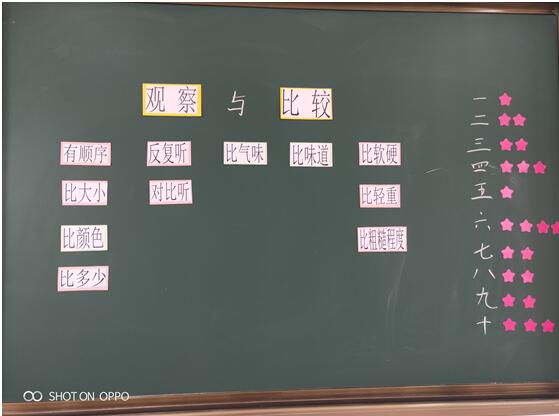 观察 与 比较
有顺序 反复听 比气味 比味道 比软硬
比大小 对比听 比轻重
比颜色 比粗糙程度
比多少
一
二
三
四
五
六
七
八
九
十
SHOT ON OPPO